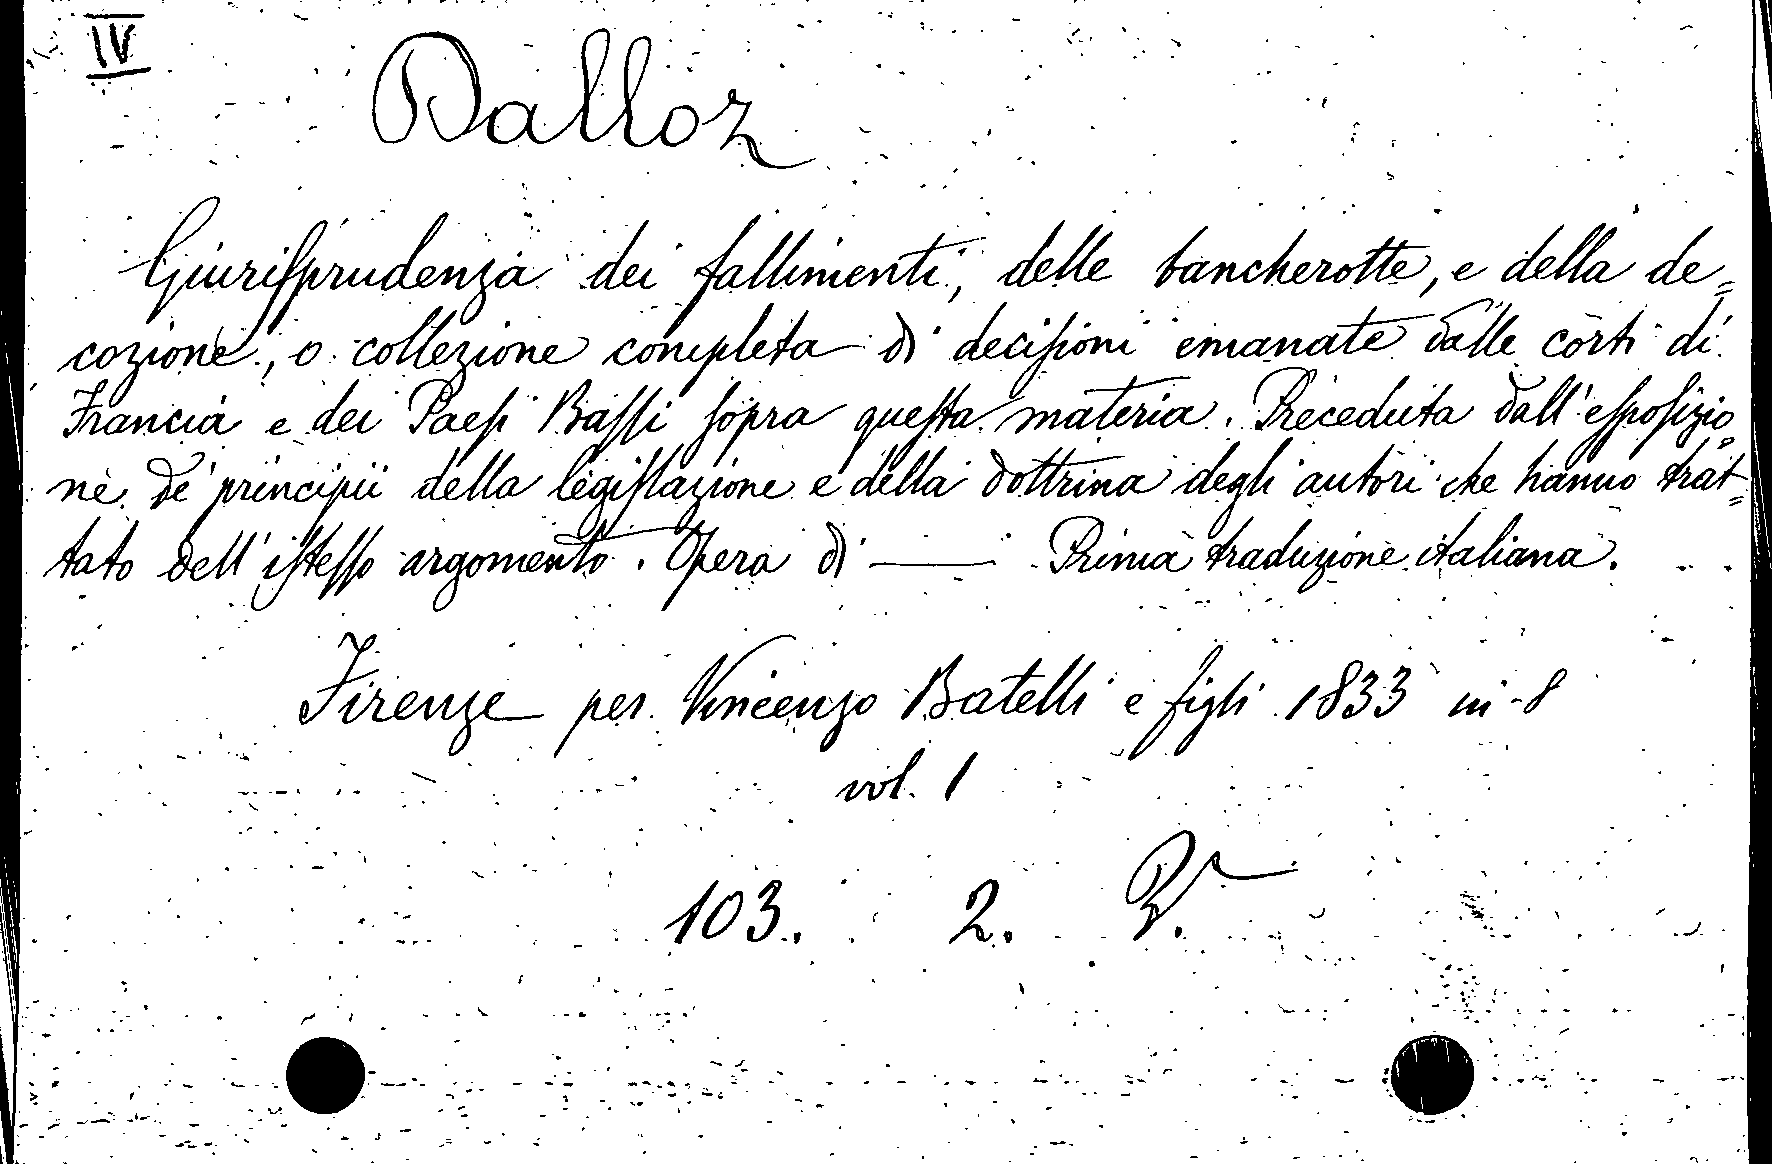 IV
Dalloz
Giurisprudenza dei fallimenti, delle bancherotte, e della de=
cozione, o collezione completa di decisioni emanate dalle corti di
Francia e dei Paesi Bassi sopra questa materia. Preceduta dall'esposizio=
ne de' principii della legislazione e della dottrina degli autori che hanno trat=
tato dell'istesso argomento. Opera di —— Prima traduzione italiana.
Firenze per Vincenzo Batelli e figli 1833 in-8
vol. 1
103. 2.